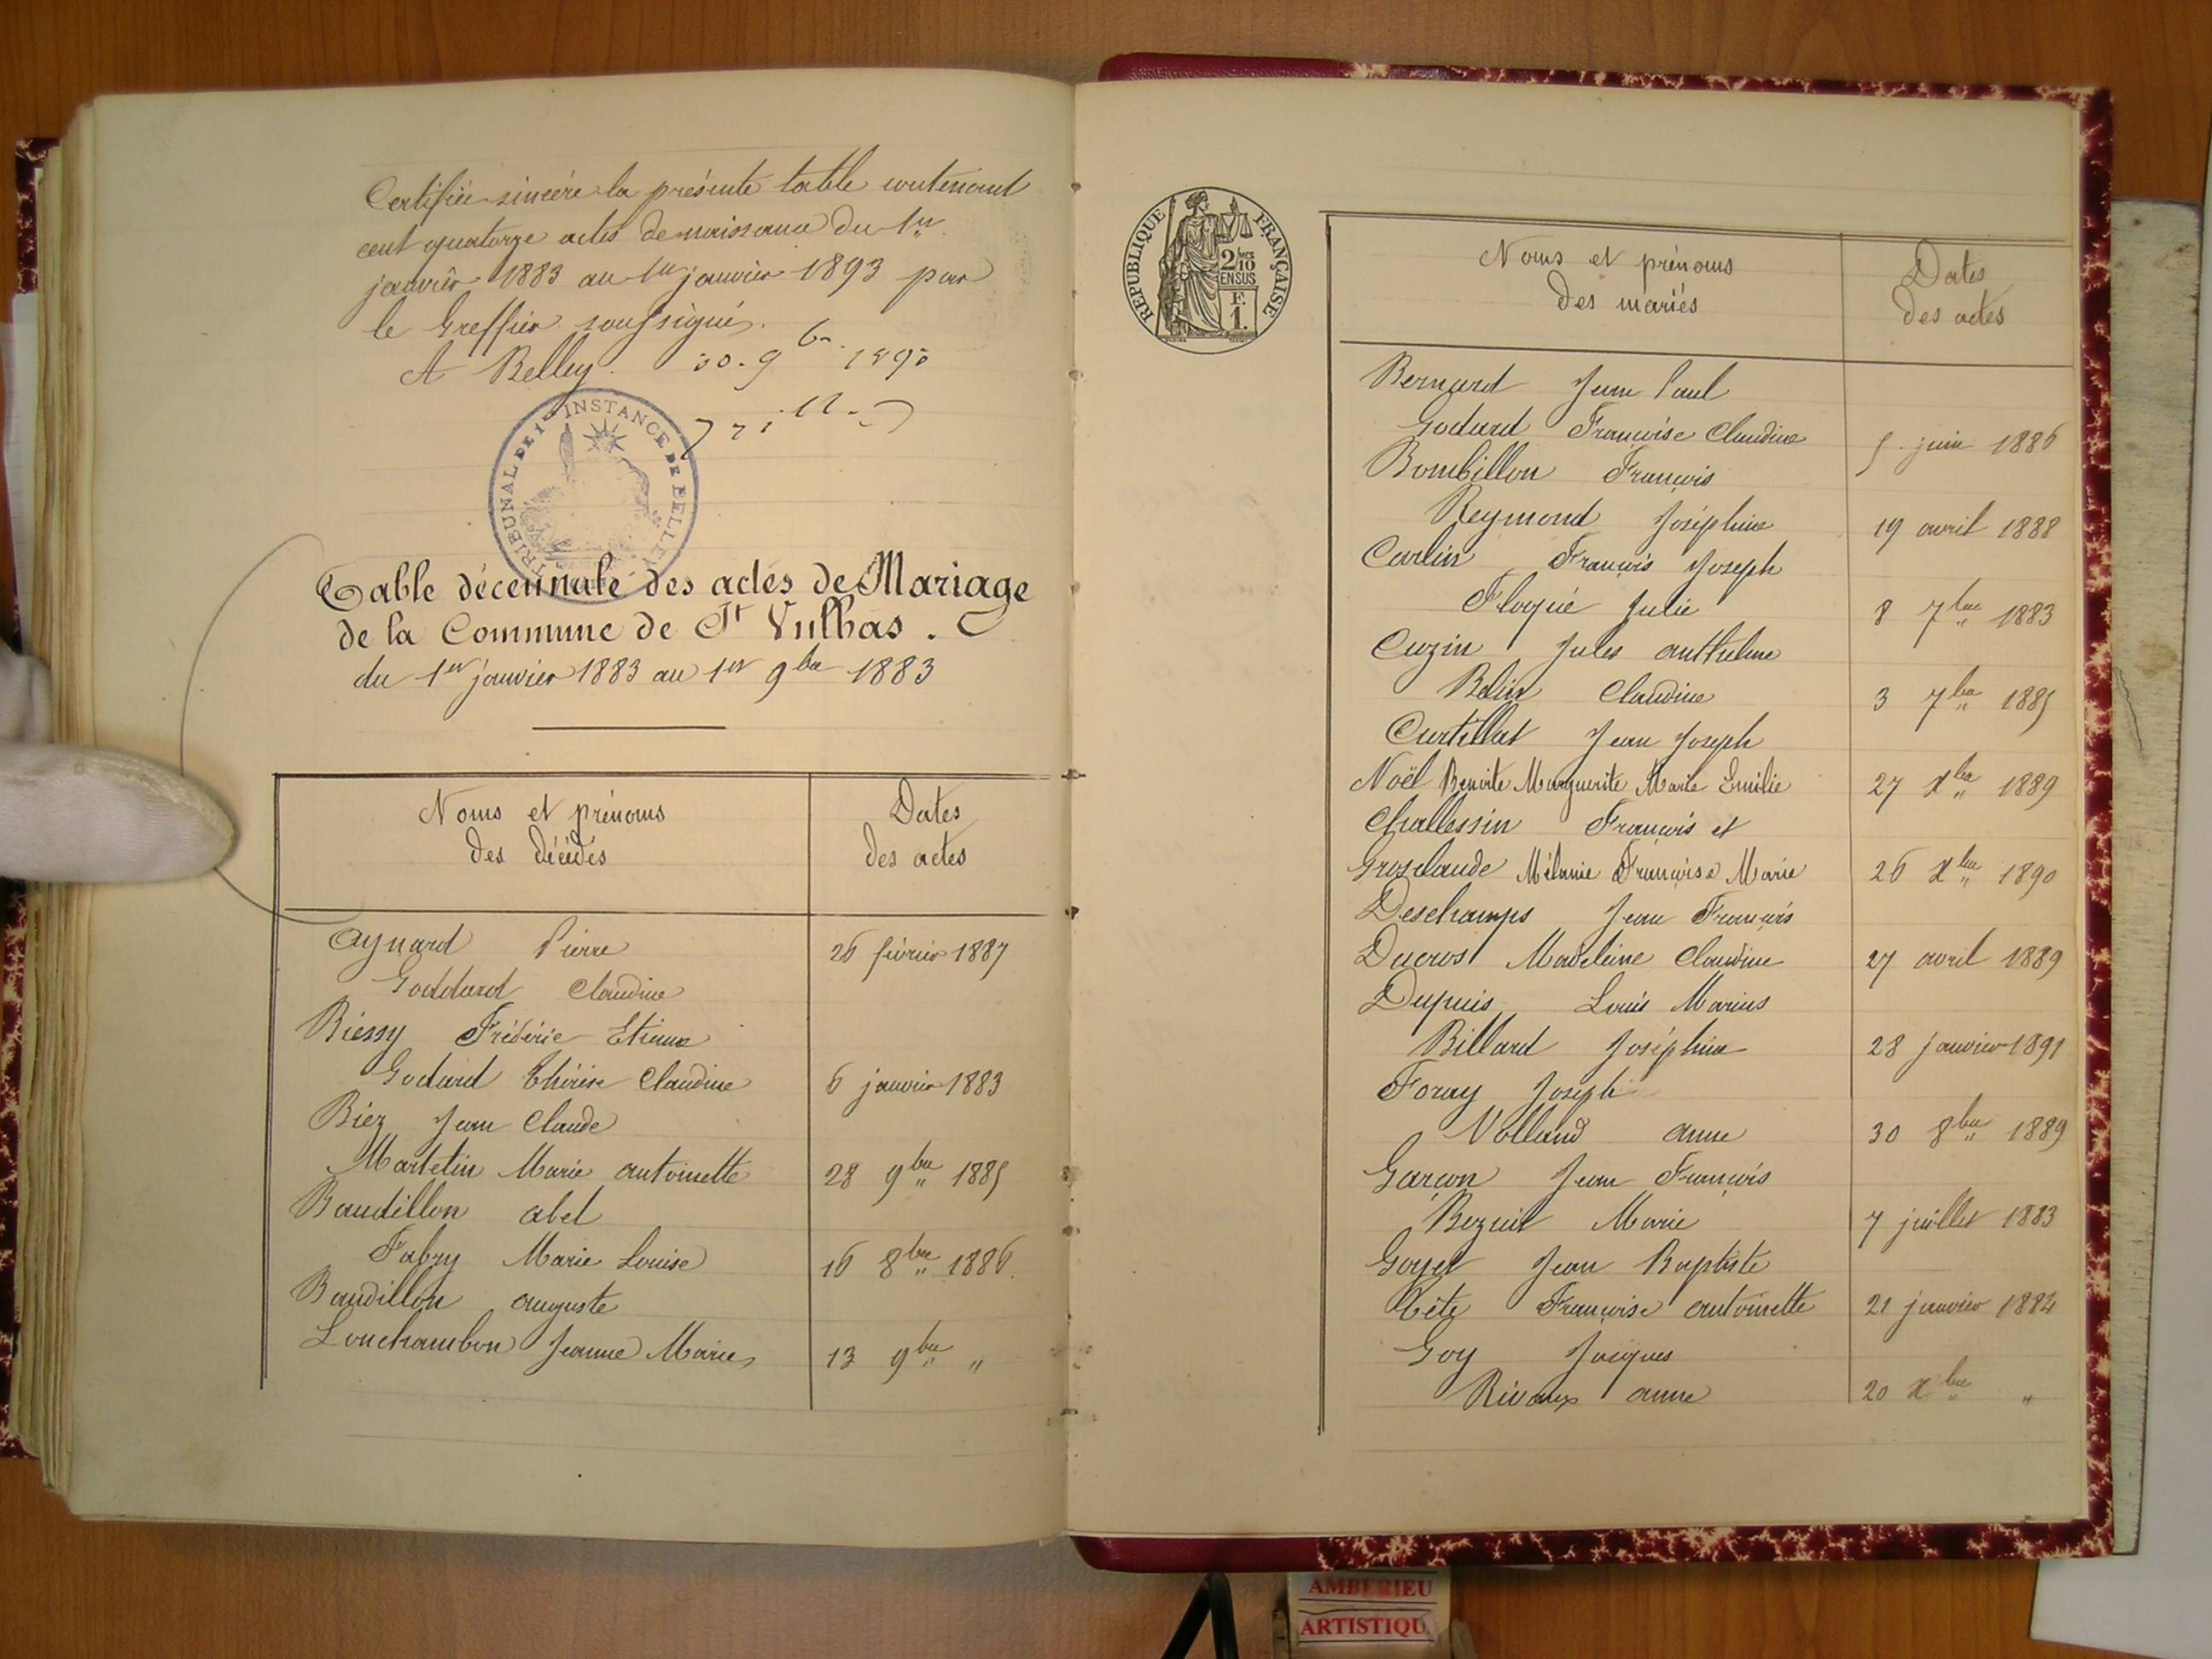 Certifiée sincère la présente table contenant
cent quatorze actes de naissance du 1er
janvier 1883 au 1er janvier 1893 par
le Greffier soussigné.
A Belley
TRIBUNAL DE 1re INSTANCE DE BELLEY
Table décennale des actes de Mariage
de la Commune de St Vulbas.
du 1er janvier 1883 au 1er 9bre 1883
Noms et prénoms
des décédés
Dates
des actes
Aynard Pierre 26 février 1887
Goddard Claudine
Biessy Frédéric Etienne
Godard Thérèse Claudine 6 janvier 1883
Biez Jean Claude
Martelin Marie antoinette 28 9bre 1885
Baudillon abel
Fabry Marie Louise 16 8bre 1886
Baudillon auguste
Louchambon Jeanne Marie 13 9bre "
REPUBLIQUE FRANÇAISE
2/10
EN SUS
F.
1.
Noms et prénoms
des mariés
Dates
des actes
Bernard Jean Paul
Godard Françoise Claudine 5 juin 1886
Bombillon François
Reymond Joséphine 19 avril 1888
Carlin François Joseph
Floqué Julie 8 7bre 1883
Cuzin Jules anthelme
Belin Claudine 3 7bre 1885
Curtillat Jean Joseph
Noël Benoite Marguerite Marie Emilie 27 Xbre 1889
Challessin François et
Grosclaude Mélanie Françoise Marie 26 Xbre 1890
Deschamps Jean François
Ducros Madeleine Claudine 27 avril 1889
Dupuis Louis Marius
Billard Joséphine 28 janvier 1891
Foray Joseph
Volland anne 30 8bre 1889
Garçon Jean François
Marie 7 juillet 1883
Goyet Jean Baptiste
Tête Françoise antoinette 21 janvier 1884
Goy Jacques
Rivaux anne 20 Xbre "
AMBERIEU
ARTISTIQU